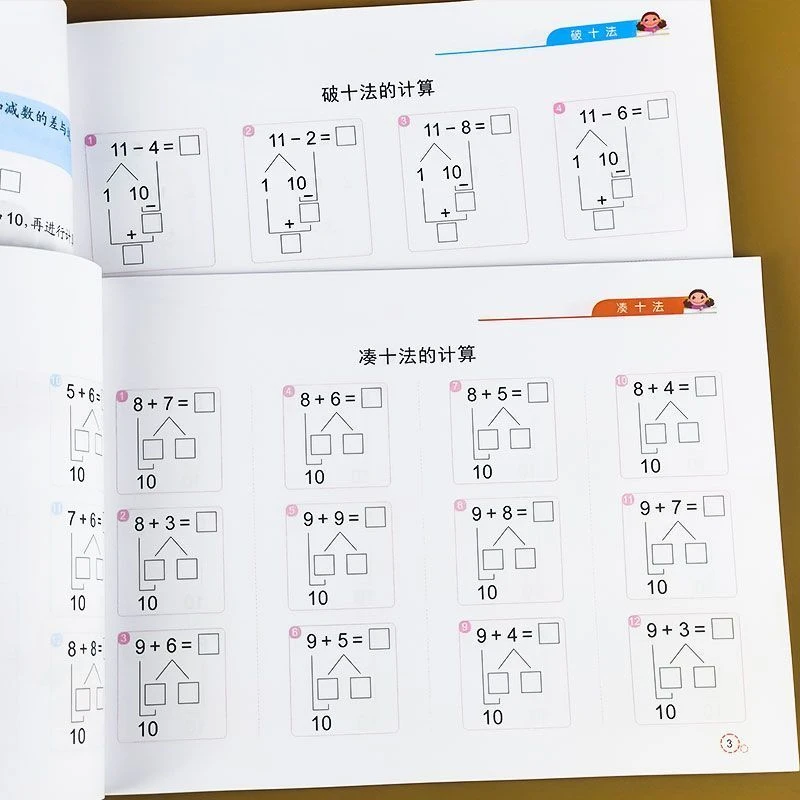 破十法
破十法的计算
和减数的差与
10,再进行计
1
11-4=□
1 10
-
+
2
11-2=□
1 10
-
+
3
11-8=□
1 10
-
+
4
11-6=□
1 10
-
+
凑十法
凑十法的计算
10
5+6=
10
11
7+6=
10
8+8=
10
1
8+7=□
10
4
8+6=□
10
7
8+5=□
10
10
8+4=□
10
2
8+3=□
10
5
9+9=□
10
8
9+8=□
10
11
9+7=□
10
3
9+6=□
10
6
9+5=□
10
9
9+4=□
10
12
9+3=□
10
3